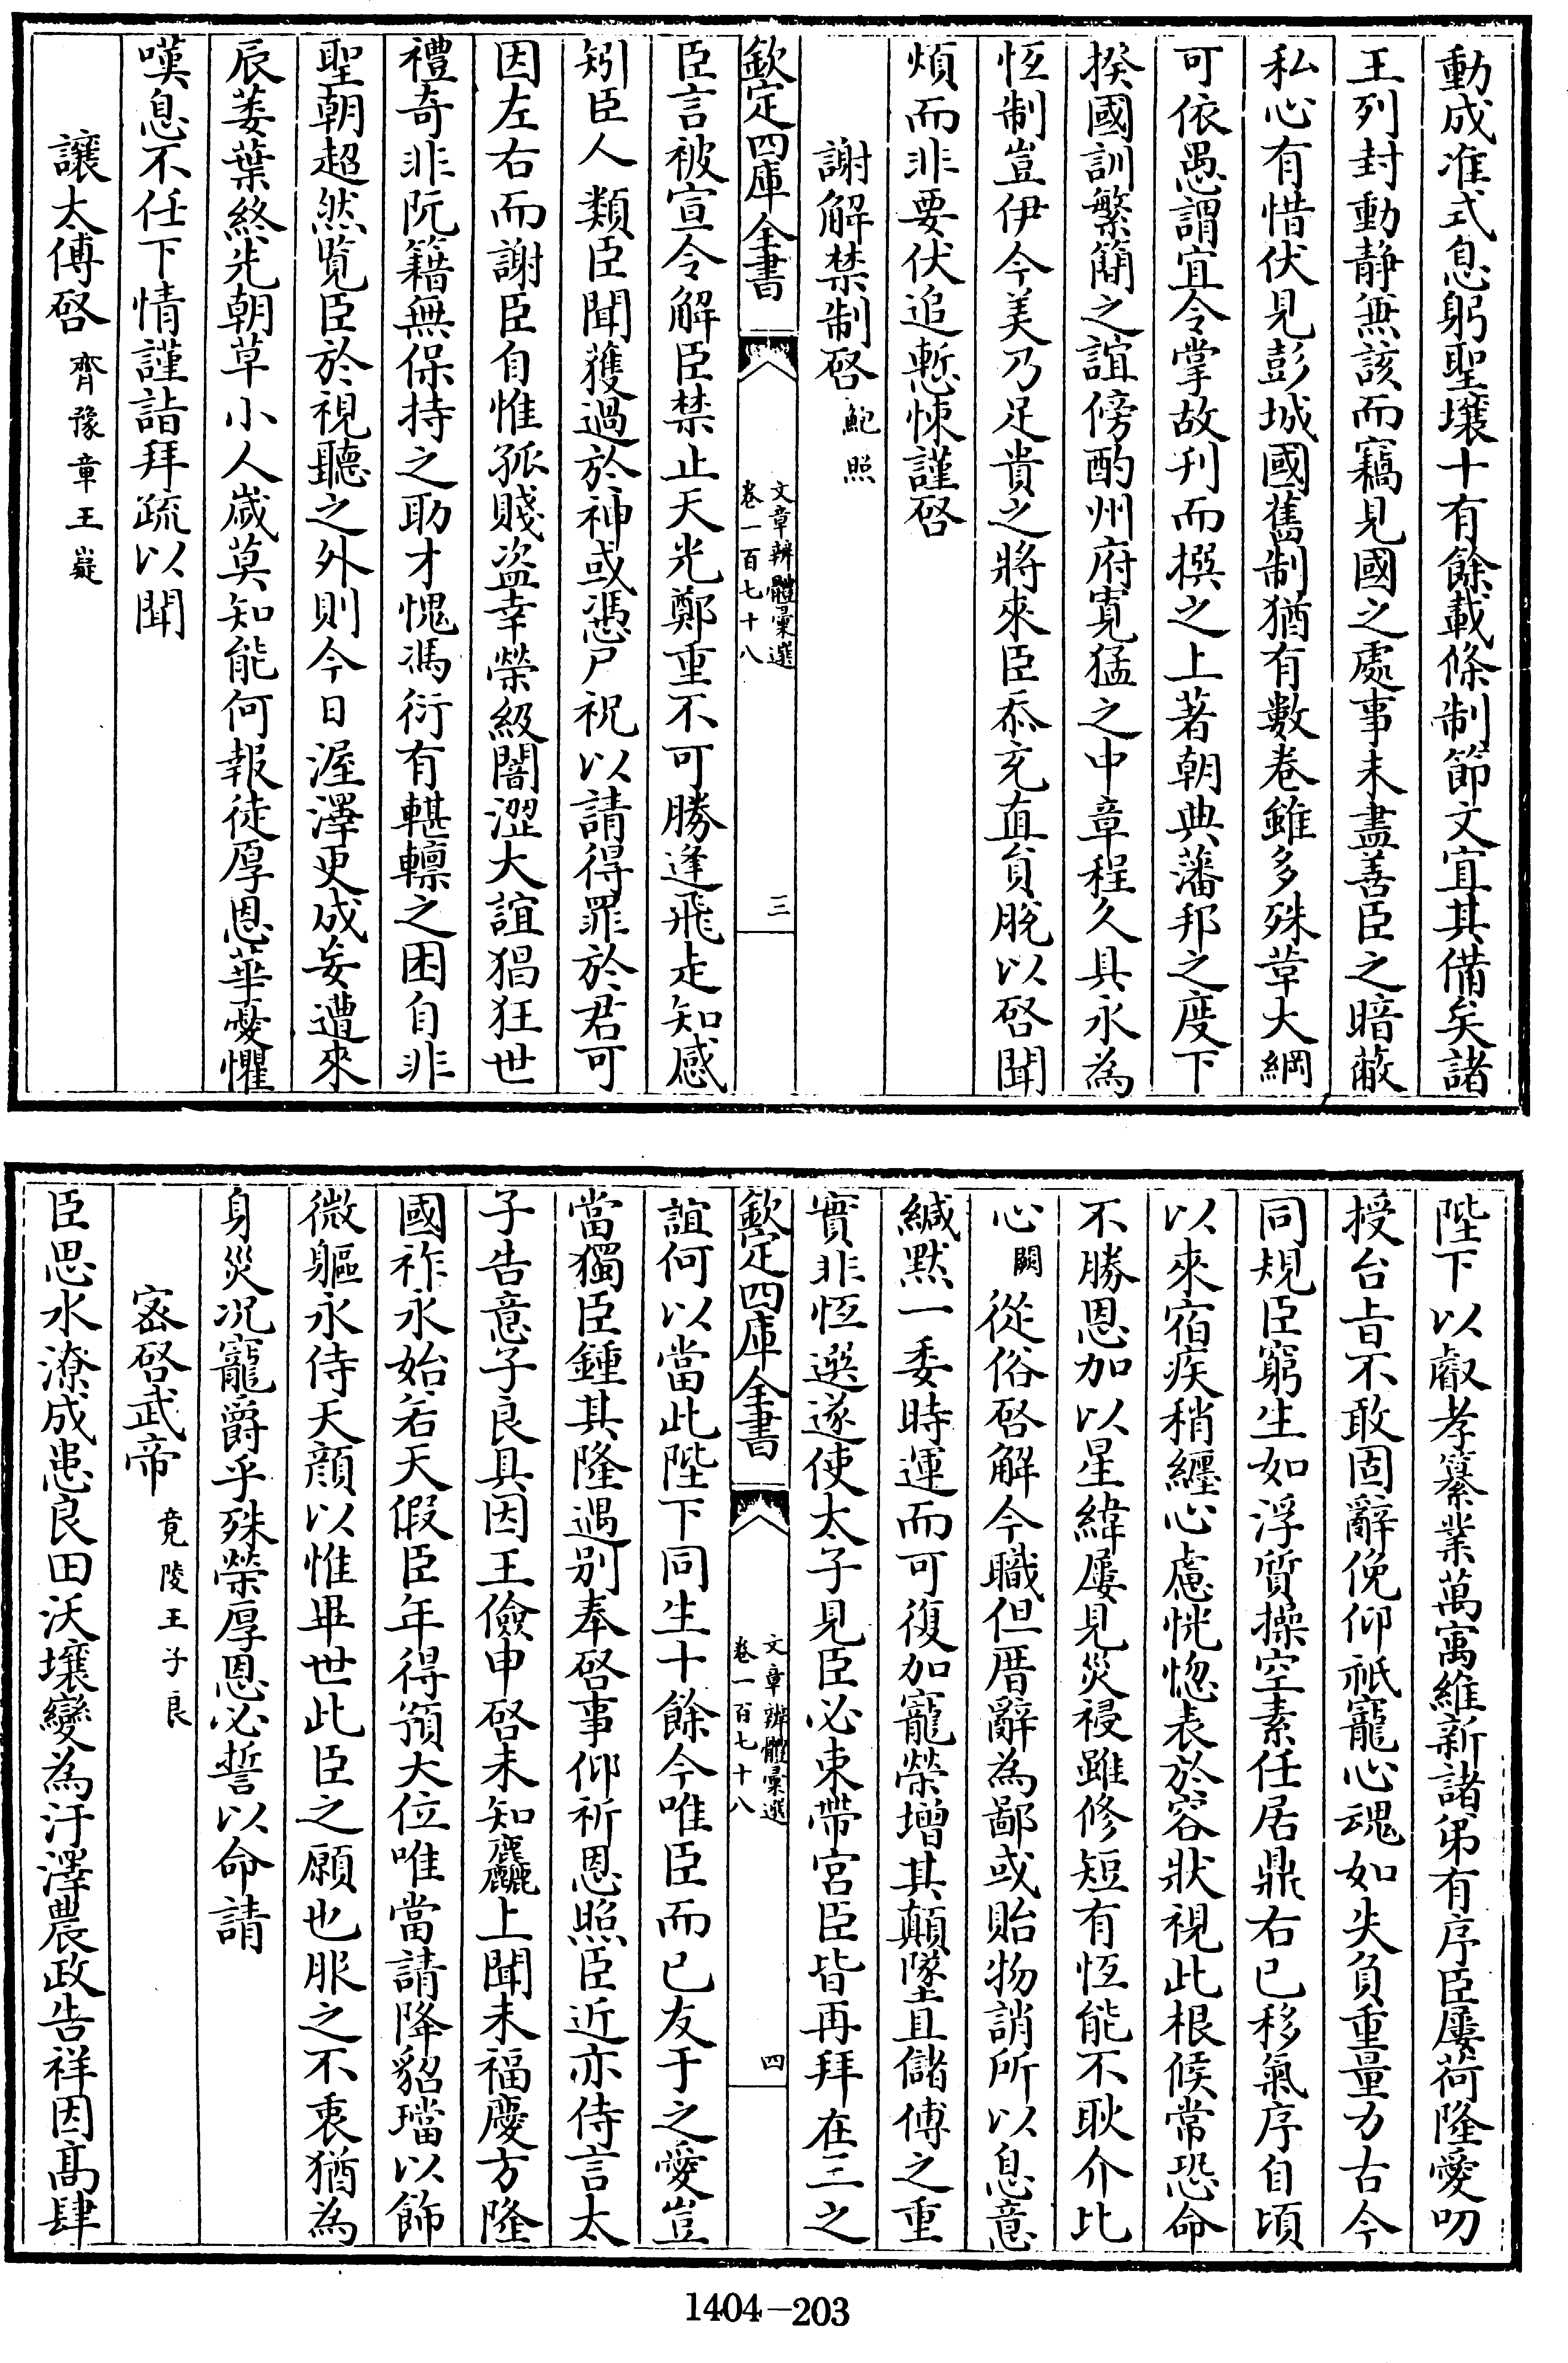 動成准式息躬聖壤十有餘載條制節文宜其備矣諸
王列封動静無該而竊見國之處事未盡善臣之暗蔽
私心有惜伏見彭城國舊制猶有數卷雖多殊草大綱
可依愚謂宜令掌故刋而撰之上著朝典藩邦之度下
揆國訓繁簡之誼傍酌州府寛猛之中章程久具永為
恆制豈伊今美乃足貴之將來臣忝充直負脫以啓聞
煩而非要伏追慙悚謹啓
謝解禁制啓鮑照
欽定四庫全書
文章辨體彙選
卷一百七十八
三
臣言被宣令解臣禁止天光鄭重不可勝逢飛走知感
矧臣人類臣聞獲過於神或憑尸祝以請得罪於君可
因左右而謝臣自惟孤賤盜幸榮級闇澀大誼猖狂世
禮奇非阮籍無保持之助才愧馮衍有轗轅之困自非
聖朝超然覧臣於視聽之外則今日渥澤更成妄遭來
辰萎葉終先朝草小人嵗莫知能何報徒厚恩華憂懼
嘆息不任下情謹詣拜疏以聞
讓太傅啓齊豫章王嶷
陛下以叡孝纂業萬寓維新諸弟有序臣屢荷隆愛叨
授台㫖不敢固辭俛仰祇寵心魂如失負重量力古今
同規臣窮生如浮質操空素任居鼎右已移氣序自頃
以來宿疾稍纒心慮恍惚表於容狀視此根候常恐命
不勝恩加以星緯屢見災祲雖修短有恆能不耿介比
心闕從俗啓解今職但厝辭為鄙或貽物誚所以息意
緘黙一委時運而可復加寵榮增其顛墜且儲傅之重
實非恆選遂使太子見臣必束帶宫臣皆再拜在三之
欽定四庫全書
文章辨體彙選
卷一百七十八
四
誼何以當此陛下同生十餘今唯臣而已友于之愛豈
當獨臣鍾其隆遇别奉啓事仰祈恩照臣近亦侍言太
子告意子良具因王儉申啓未知麤上聞未福慶方隆
國祚永始若天假臣年得預大位唯當請降貂璫以飾
微軀永侍天顔以惟畢世此臣之願也服之不衷猶為
身災况寵爵乎殊榮厚恩必誓以命請
宻啓武帝竟陵王子良
臣思水潦成患良田沃壤變為汙澤農政告祥因髙肆
1404—203